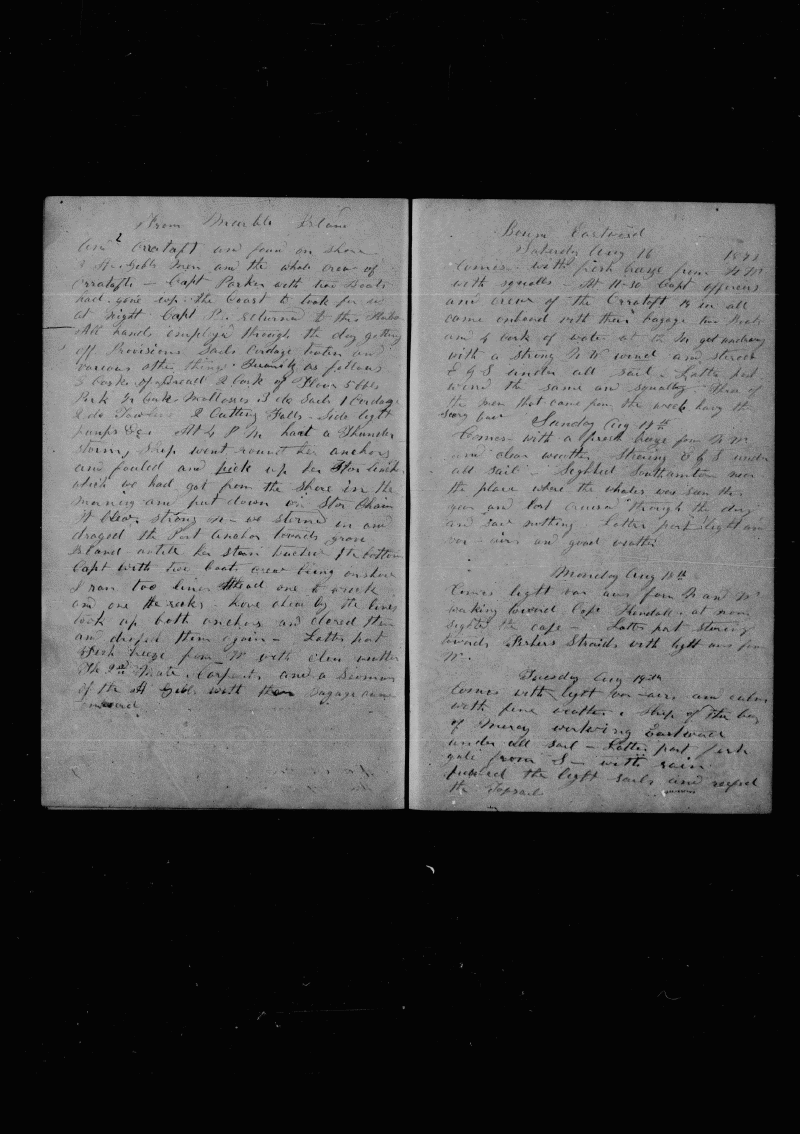 From Marble Island
and Orrataft and found on shore
2 A. Gibbs men and the whole crew of
Orratafts – Capt Parker with two Boats
had gone up the Coast to look for us
at night Capt P. returned to the
All hands employd through the day getting
off Provisions Sails Cordage and
various other things
5 Cask of Bread 2 Cask of Flour 5 bbls
Pork Cask Mollasses 3 do Sails 1 Cordage
2 do 2 Cutting Falls – Side light
pumps &c. At 4 P M had a Thunder
storm, Ship went round her anchors
and fouled and pick up her
which we had got from the shore in the
morning and put down on Star Chain
It blew strong so we in and
draged the Port Anchor towards grave
Island untill her stern the bottom
Capt with two boats crew being onshore
I ran two lines one to wreck
and one the rocks – hove ahead by the lines
took up both anchors and clered them
and droped them again – Latter part
fresh breeze from W with clear weather
The 2nd Mate, Carpenter and a Seaman
of the A Gibbs with their bagage came
onboard
Bound Eastward
Saturday Aug 16
Comes with fresh breeze from N W
with squalls – At 11-30 Capt officers
and crew of the Orrataft in all
came onboard with their bagage two Boats
and 4 cask of water at the got underway
with a strong N W wind and steered
E & S under all sail – Latter part
wind the same and squally – Three of
the men that came from the wreck have the
Scurvy bad
Sunday Aug 17th
Comes with a fresh breeze from N W
and clear weather Steering E & S under
all sail – Sighted Southamton near
the place where the whales was seen the
year and cruised through the day
and saw nothing Latter part light and
var – airs and good weather
Monday Aug 18th
Comes light var airs from N and W
waking toward Cape Kendall – at noon
sighted the cape – Latter part steering
towards Fishers Straids with light airs from
W.
Tuesday Aug 19th
Comes with light var – airs and calms
with fine weather – Ship of the bay
of Mercy working Eastward
under all sail – Latter part fresh
gale from S – with rain
the light sails and reefed
the Topsail